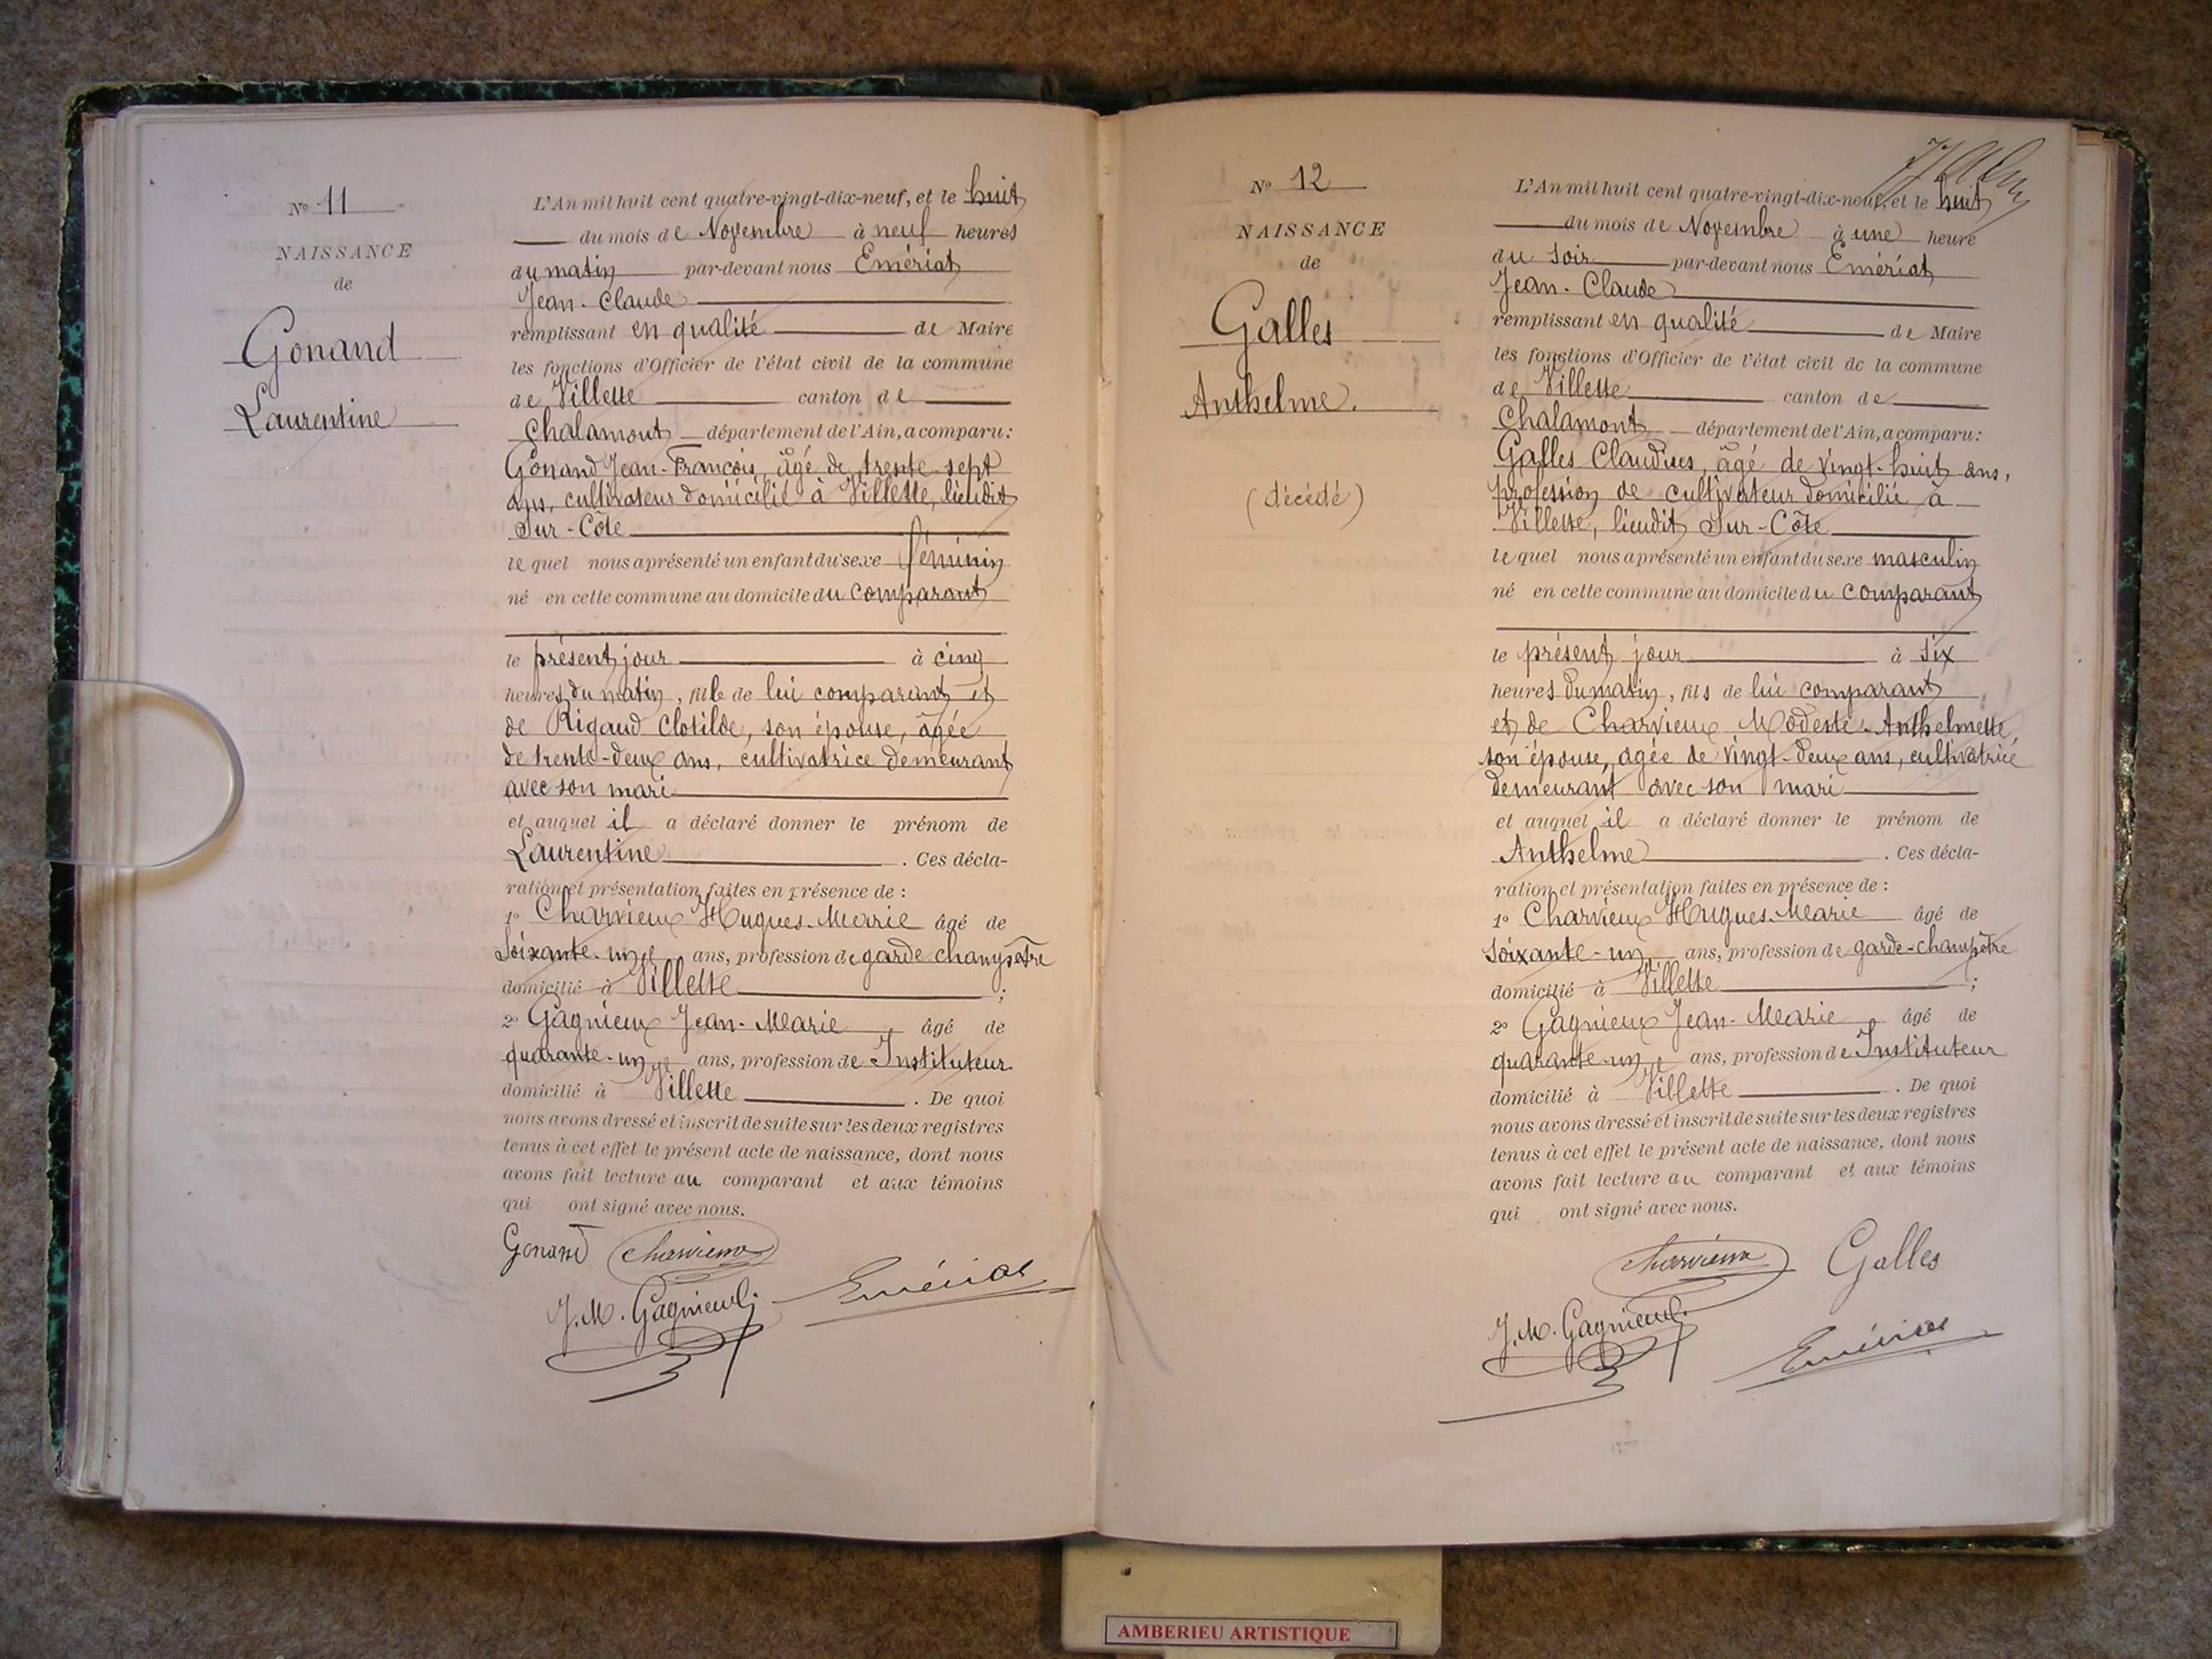 Nº 11
NAISSANCE
de
Gonand
Laurentine
L'An mil huit cent quatre-vingt-dix-neuf, et le huit
du mois de Novembre à neuf heures
du matin par-devant nous Emériat
Jean-Claude
remplissant en qualité de Maire
les fonctions d'Officier de l'état civil de la commune
de Villette canton de
Chalamont département de l'Ain, a comparu :
Gonand Jean-François, âgé de trente-sept
ans, cultivateur domicilié à Villette, lieudit
Sur-Côte
le quel nous a présenté un enfant du sexe féminin
né en cette commune au domicile du comparant
le présent jour à cinq
heures du matin, fille de lui comparant et
de Rigaud Clotilde, son épouse, âgée
de trente-deux ans, cultivatrice demeurant
avec son mari
et auquel il a déclaré donner le prénom de
Laurentine . Ces décla-
ration et présentation faites en présence de :
1º Charvieux Hugues-Marie âgé de
soixante-un ans, profession de garde champêtre
domicilié à Villette ;
2º Gagnieux Jean-Marie âgé de
quarante-un ans, profession de Instituteur
domicilié à Villette . De quoi
nous avons dressé et inscrit de suite sur les deux registres
tenus à cet effet le présent acte de naissance, dont nous
avons fait lecture au comparant et aux témoins
qui ont signé avec nous.
Gonand Charvieux
J. M. Gagnieux Emériat
Nº 12
NAISSANCE
de
Galles
Anthelme.
(décédé)
L'An mil huit cent quatre-vingt-dix-neuf, et le huit
du mois de Novembre à une heure
du soir par-devant nous Emériat
Jean-Claude
remplissant en qualité de Maire
les fonctions d'Officier de l'état civil de la commune
de Villette canton de
Chalamont département de l'Ain, a comparu :
Galles Claudius, âgé de vingt-huit ans,
profession de cultivateur domicilié à
Villette, lieudit Sur-Côte
le quel nous a présenté un enfant du sexe masculin
né en cette commune au domicile du comparant
le présent jour à six
heures du matin, fils de lui comparant
et de Charvieux Modeste-Anthelmette,
son épouse, agée de vingt-deux ans, cultivatrice
demeurant avec son mari
et auquel il a déclaré donner le prénom de
Anthelme . Ces décla-
ration et présentation faites en présence de :
1º Charvieux Hugues-Marie âgé de
soixante-un ans, profession de garde-champêtre
domicilié à Villette ;
2º Gagnieux Jean-Marie âgé de
quarante-un ans, profession de Instituteur
domicilié à Villette . De quoi
nous avons dressé et inscrit de suite sur les deux registres
tenus à cet effet le présent acte de naissance, dont nous
avons fait lecture au comparant et aux témoins
qui ont signé avec nous.
Charvieux Galles
J. M. Gagnieux Emériat
AMBERIEU ARTISTIQUE